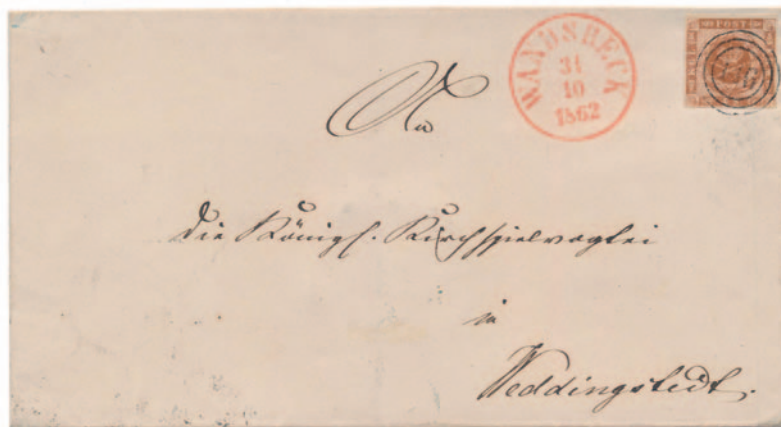 WANDSBECK
31
10
1862
POST
An
die Königl. Kirchspielvogtei
in
Weddingstedt.